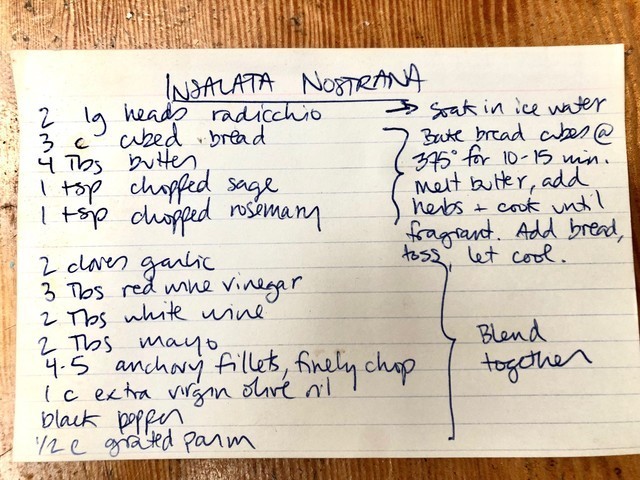 INSALATA NOSTRANA
2 lg heads radicchio → Soak in ice water
3 c cubed bread
4 Tbs butter
1 tsp chopped sage
1 tsp chopped rosemary
Bake bread cubes @
375° for 10-15 min.
melt butter, add
herbs + cook until
fragrant. Add bread,
toss, let cool.
2 cloves garlic
3 Tbs red wine vinegar
2 Tbs white wine
2 Tbs mayo
4-5 anchovy fillets, finely chop
1 c extra virgin olive oil
black pepper
1/2 c grated parm
Blend
together